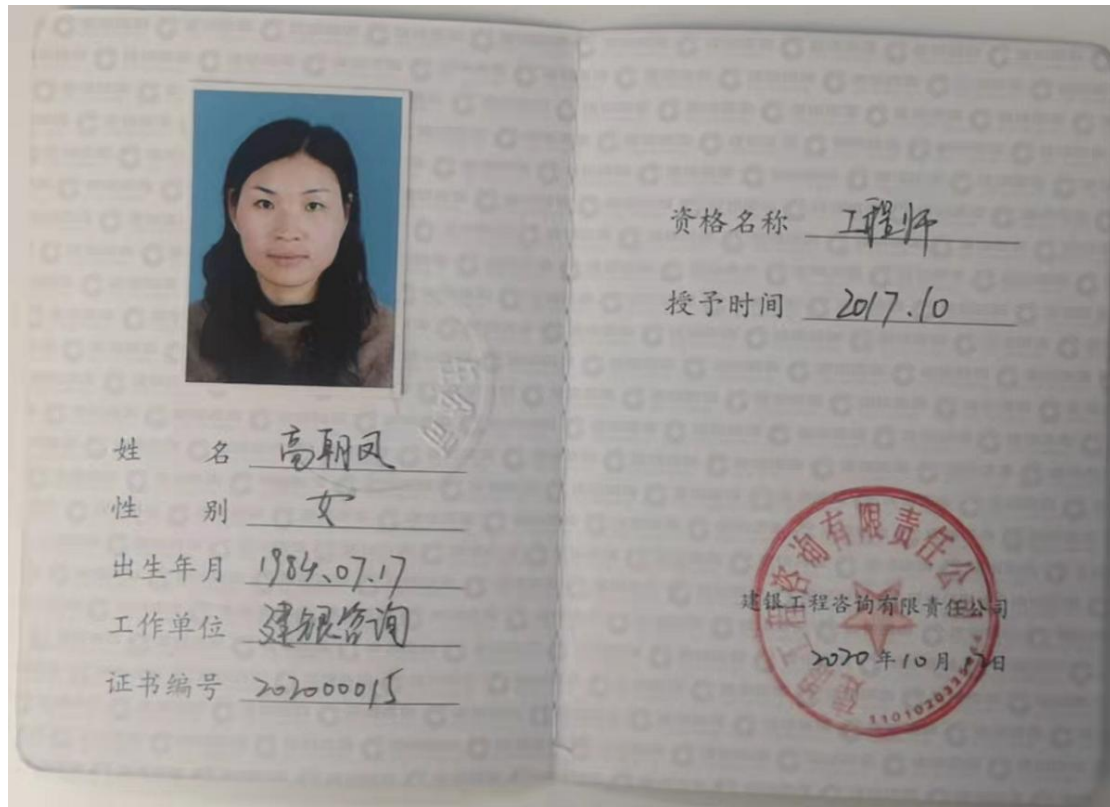 姓名 高朝凤
性别 女
出生年月 1984.07.17
工作单位 建银咨询
证书编号 202000015
资格名称 工程师
授予时间 2017.10
建银工程咨询有限责任公司
建银工程咨询有限责任公司
2020年10月 日